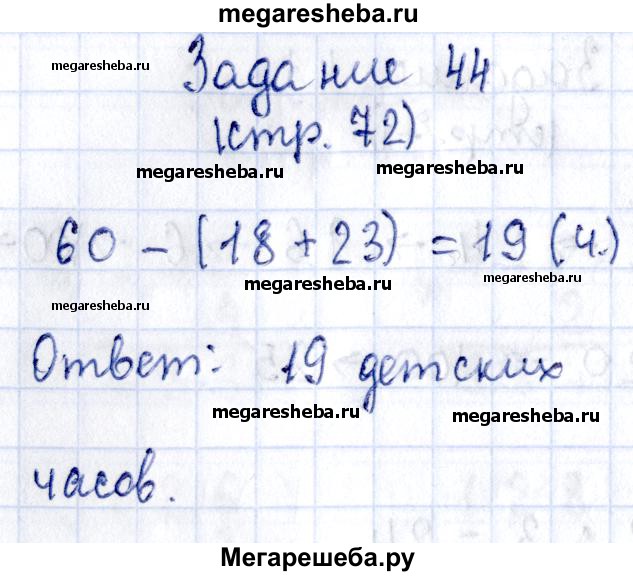 megaresheba.ru
megaresheba.ru
Задание 44
megaresheba.ru
(стр. 72)
megaresheba.ru megaresheba.ru
60 - (18 + 23) = 19 (ч.)
megaresheba.ru megaresheba.ru
megaresheba.ru
Ответ: 19 детских
megaresheba.ru megaresheba.ru
часов.
Мегарешеба.ру